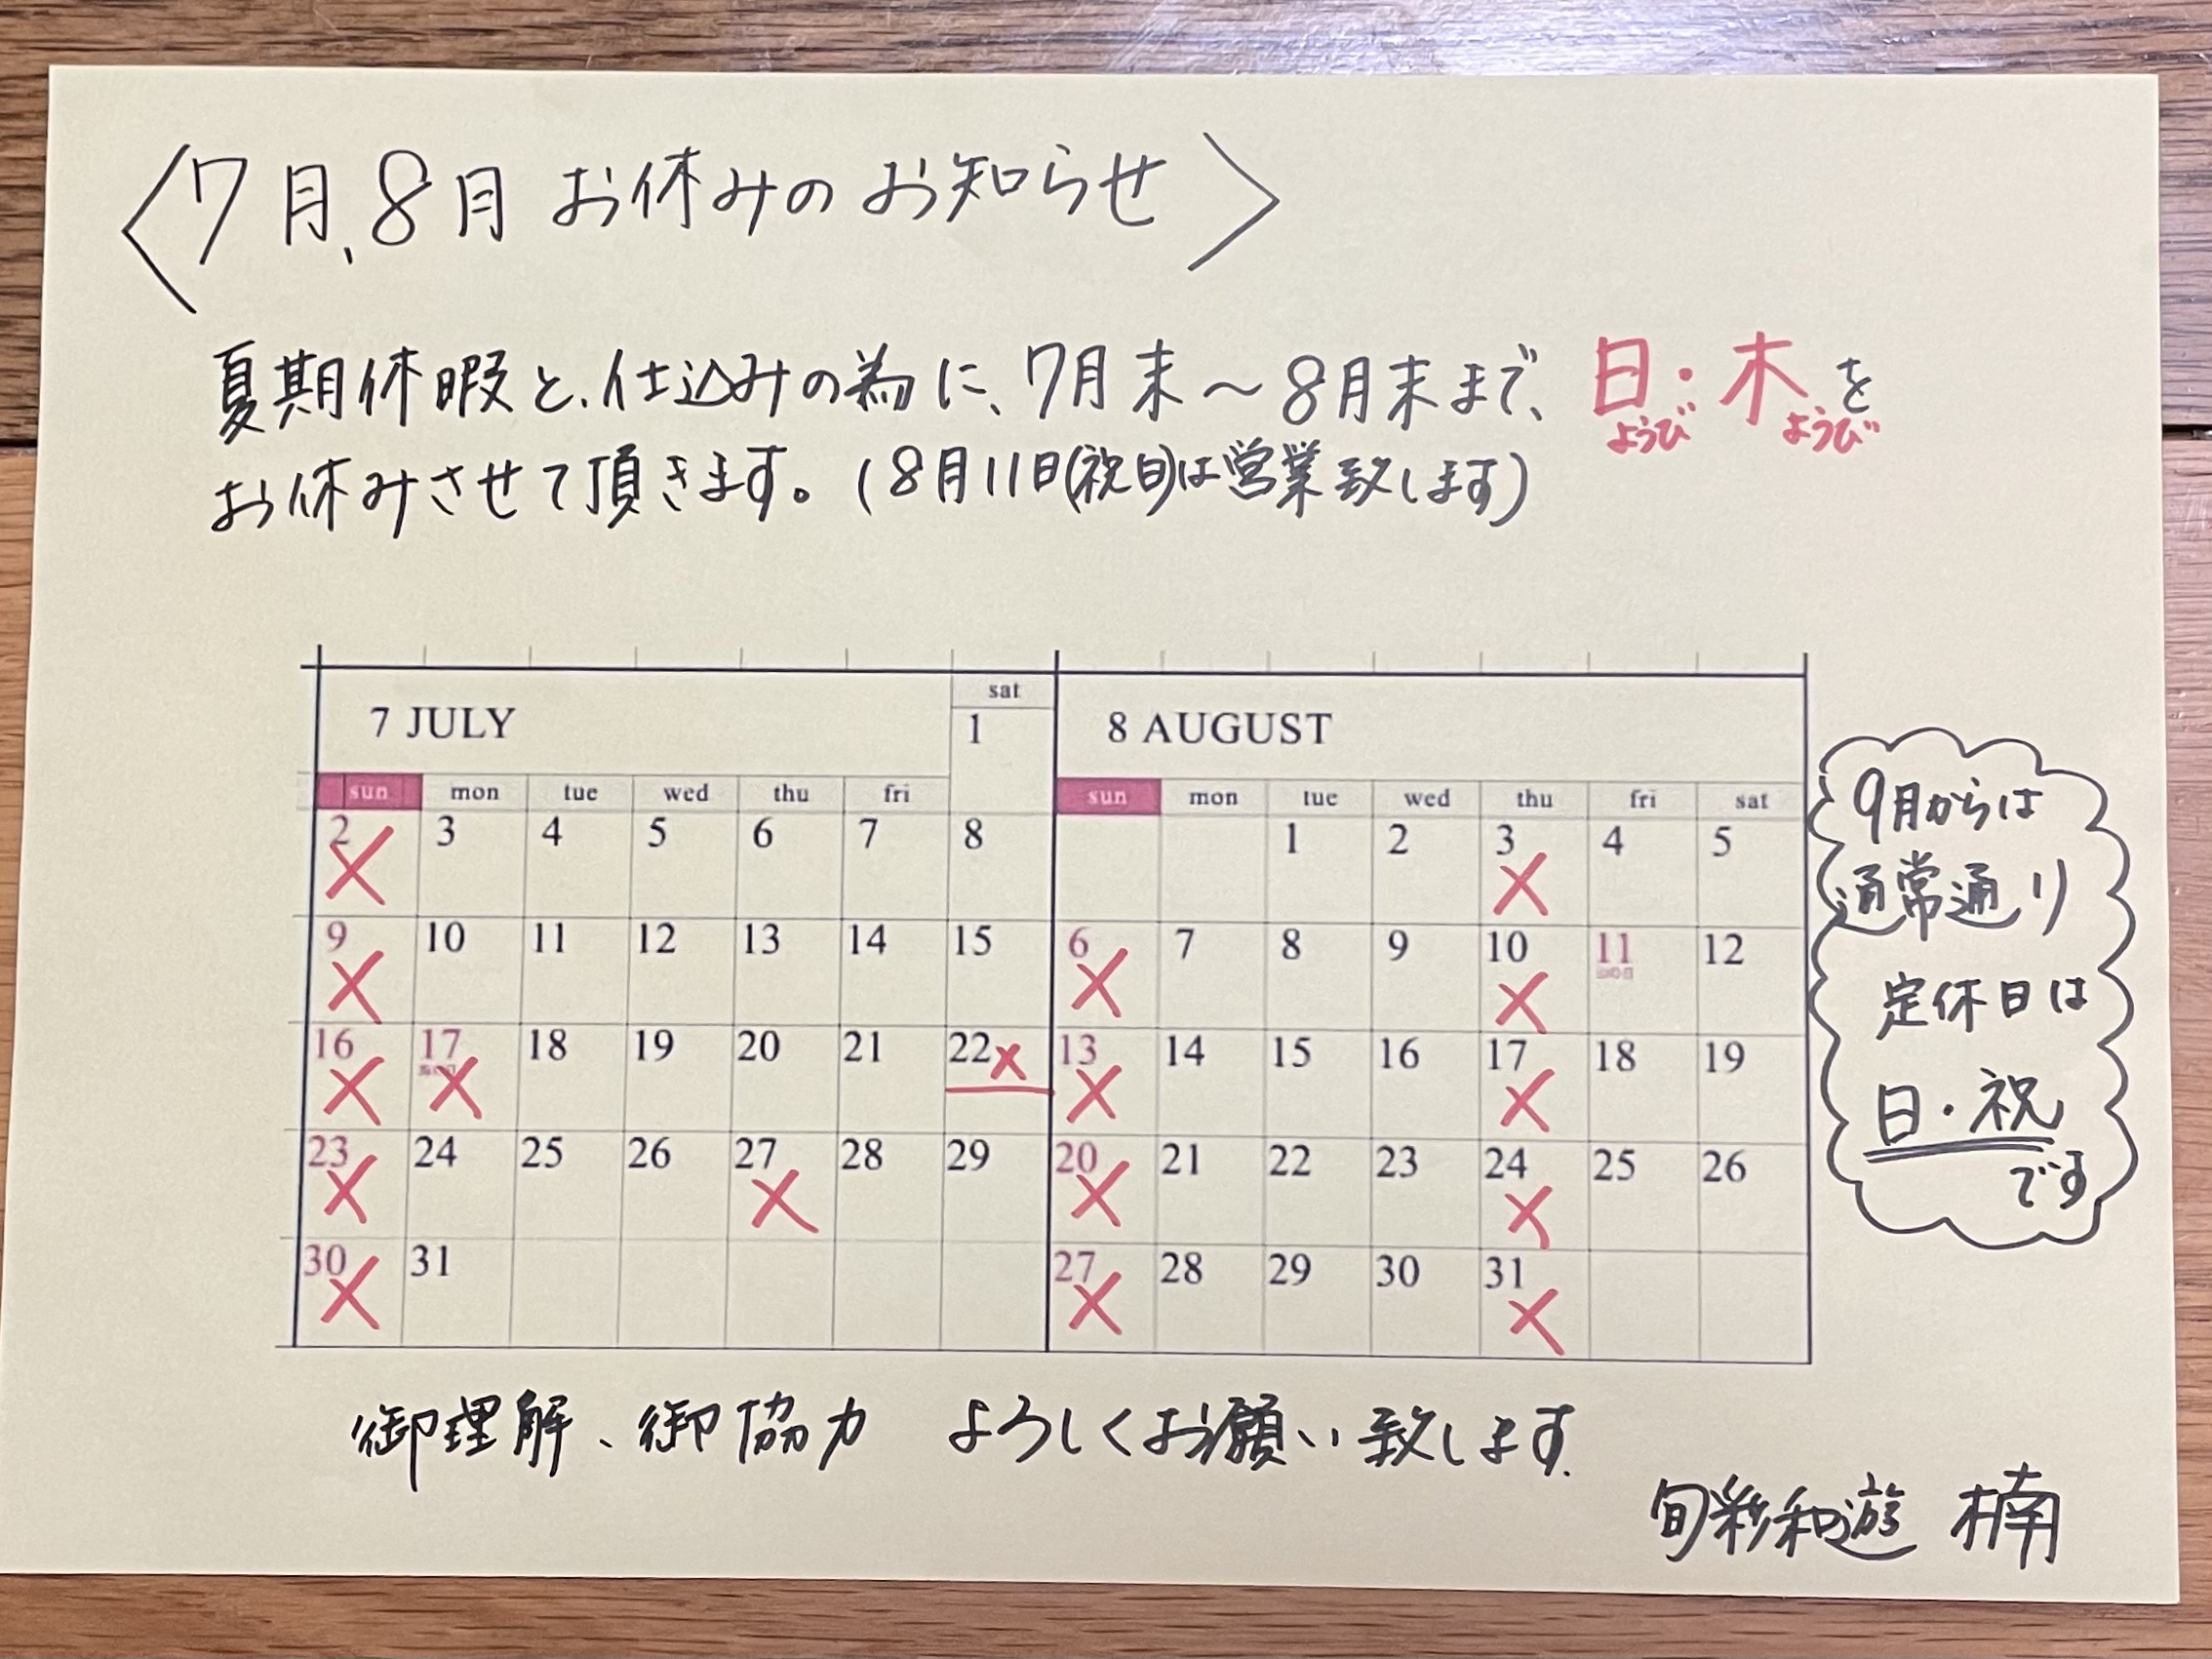 〈7月、8月 お休みの お知らせ〉
夏期休暇と、仕込みの為に、7月末〜8月末まで、日・木を
ようび ようび
お休みさせて頂きます。(8月11日(祝日)は営業致します)
7 JULY
sat
1
sun mon tue wed thu fri
2 3 4 5 6 7 8
9 10 11 12 13 14 15
16 17 18 19 20 21 22
23 24 25 26 27 28 29
30 31
8 AUGUST
sun mon tue wed thu fri sat
1 2 3 4 5
6 7 8 9 10 11 12
13 14 15 16 17 18 19
20 21 22 23 24 25 26
27 28 29 30 31
9月からは
通常通り
定休日は
日・祝
です
御理解、御協力 よろしくお願い致します.
旬彩和遊 楠